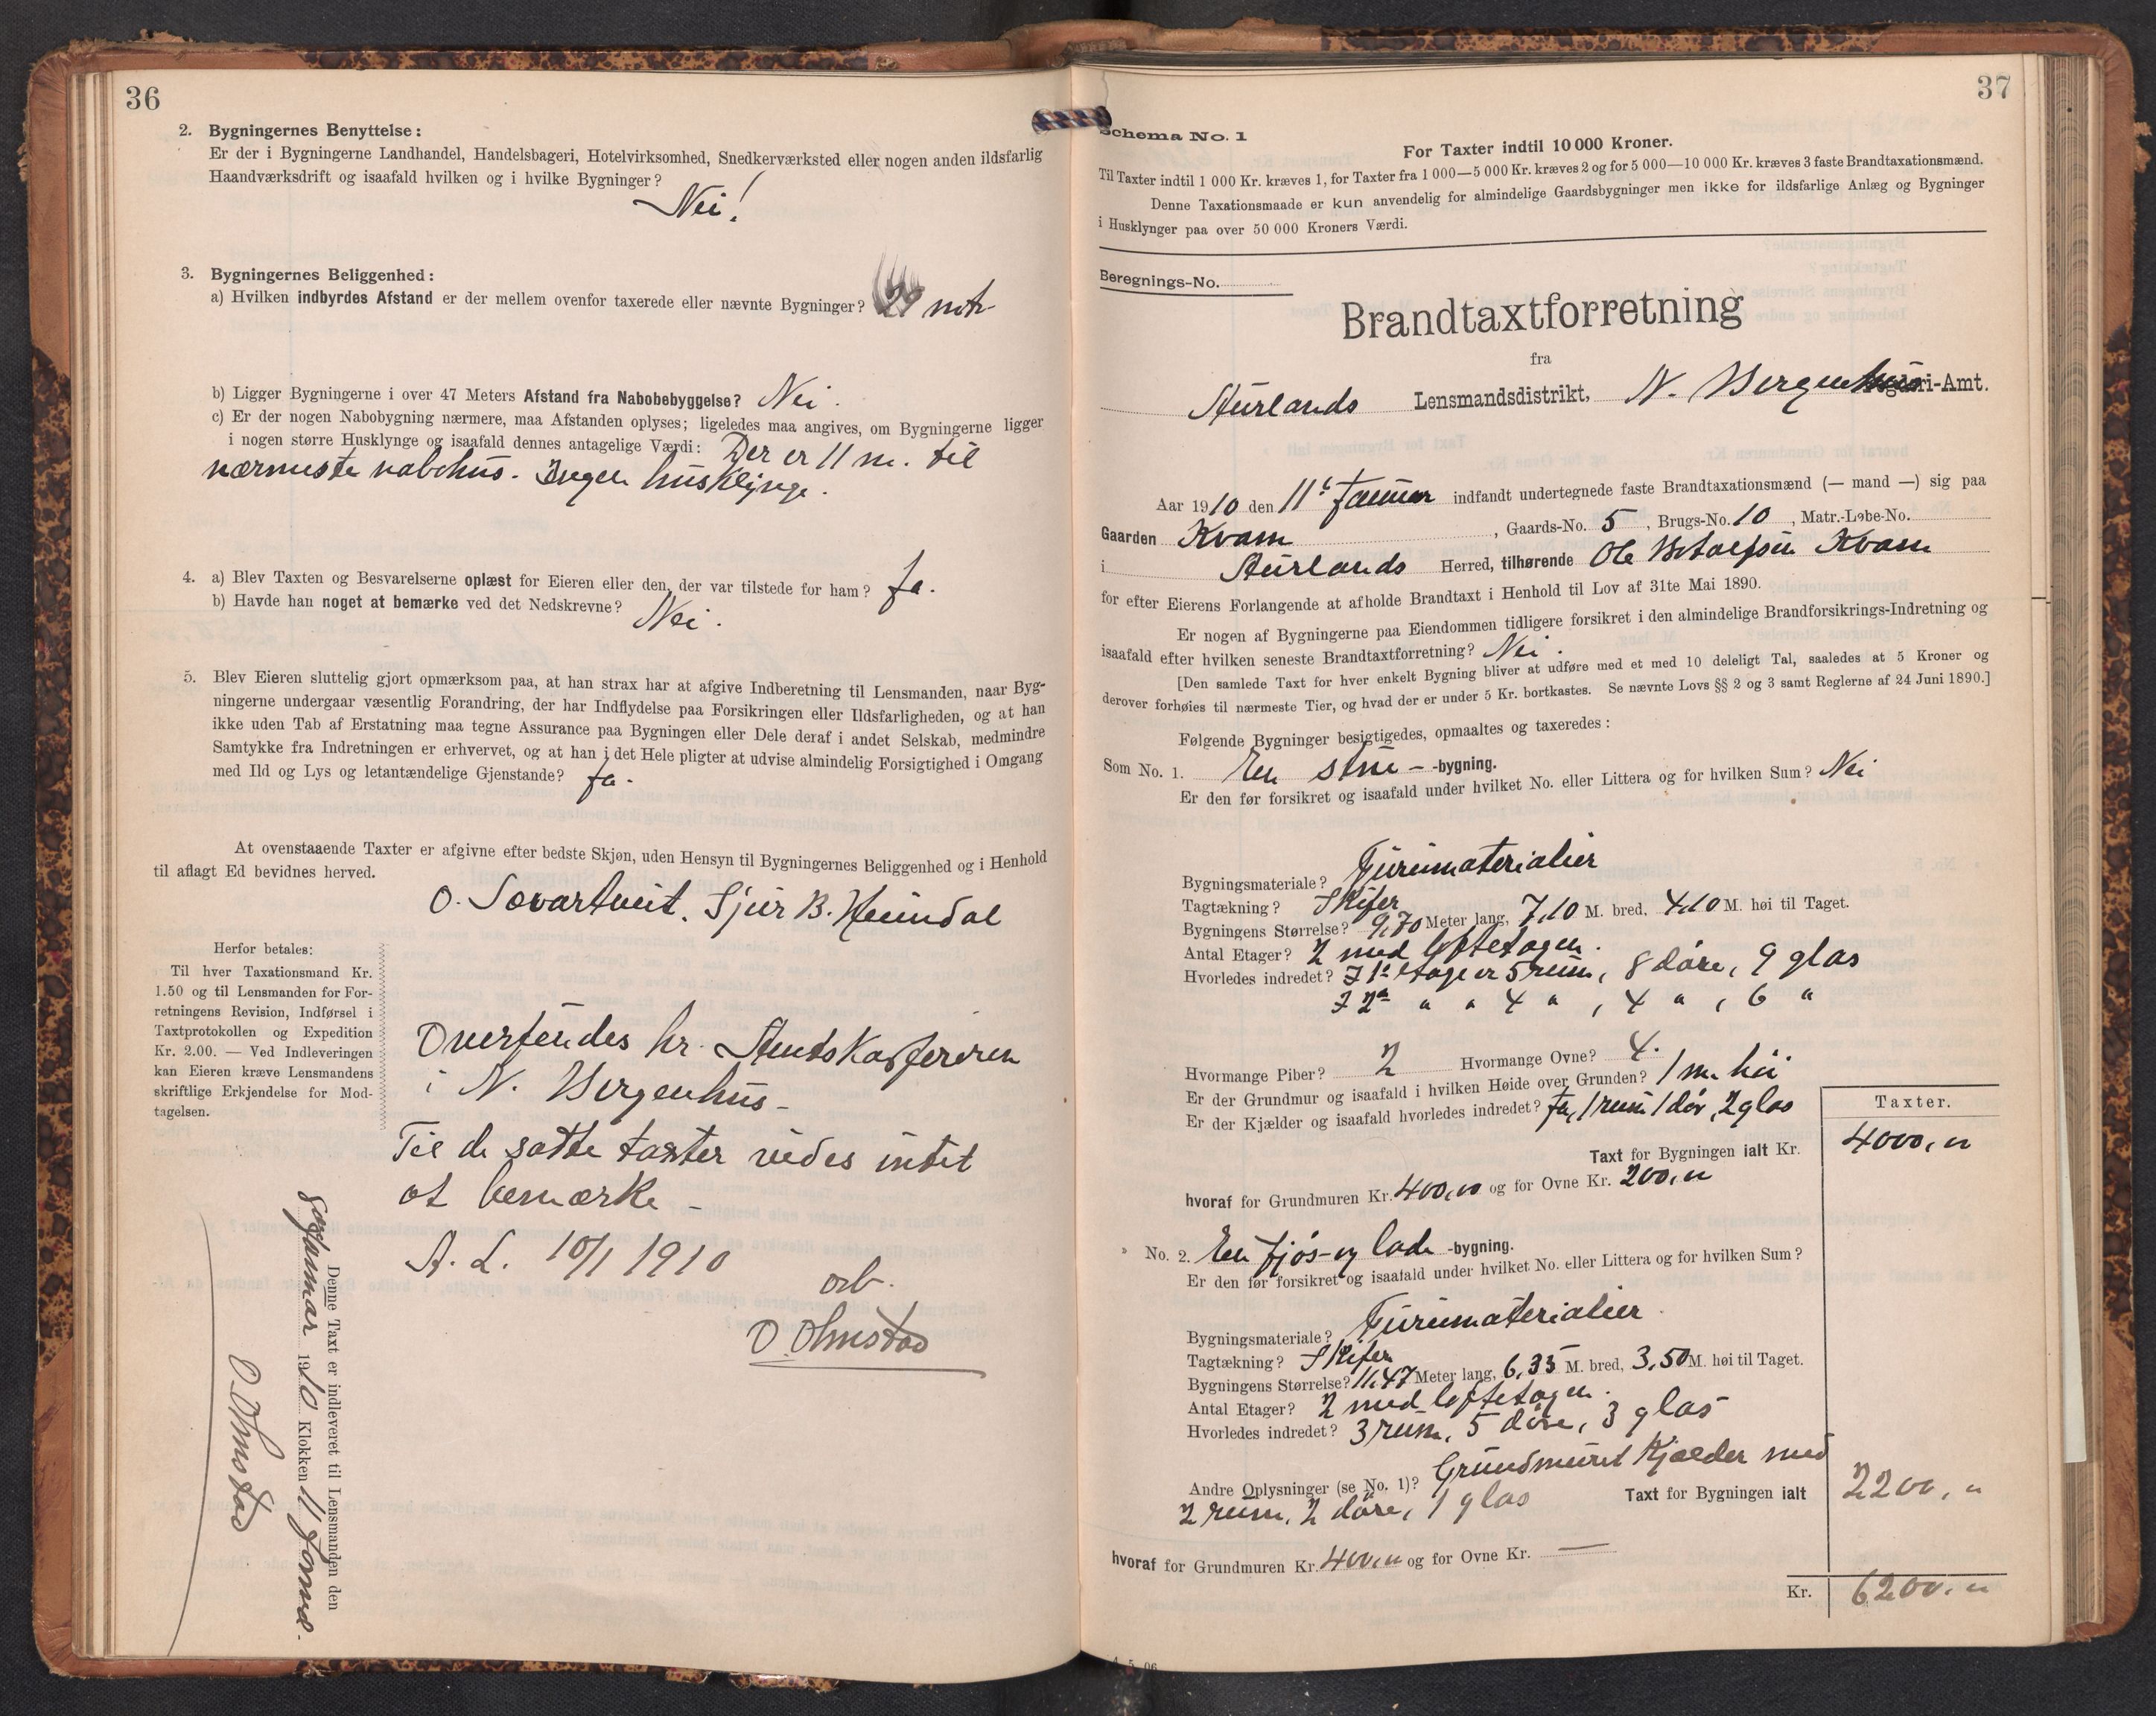 36
2. Bygningernes Benyttelse:
Er der i Bygningerne Landhandel, Handelsbageri, Hotelvirksomhed, Snedkerværksted eller nogen anden ildsfarlig
Haandværksdrift og isaafald hvilken og i hvilke Bygninger?
Nei!
3. Bygningernes Beliggenhed:
a) Hvilken indbyrdes Afstand er der mellem ovenfor taxerede eller nævnte Bygninger? 29 mtr
b) Ligger Bygningerne i over 47 Meters Afstand fra Nabobebyggelse? Nei.
c) Er der nogen Nabobygning nærmere, maa Afstanden oplyses; ligeledes maa angives, om Bygningerne ligger
i nogen større Husklynge og isaafald dennes antagelige Værdi: Der er 11 m. til
nærmeste nabohus. Ingen husklynge.
4. a) Blev Taxten og Besvarelserne oplæst for Eieren eller den, der var tilstede for ham? Ja.
b) Havde han noget at bemærke ved det Nedskrevne? Nei.
5. Blev Eieren sluttelig gjort opmærksom paa, at han strax har at afgive Indberetning til Lensmanden, naar Byg-
ningerne undergaar væsentlig Forandring, der har Indflydelse paa Forsikringen eller Ildsfarligheden, og at han
ikke uden Tab af Erstatning maa tegne Assurance paa Bygningen eller Dele deraf i andet Selskab, medmindre
Samtykke fra Indretningen er erhvervet, og at han i det Hele pligter at udvise almindelig Forsigtighed i Omgang
med Ild og Lys og letantændelige Gjenstande? Ja.
At ovenstaaende Taxter er afgivne efter bedste Skjøn, uden Hensyn til Bygningernes Beliggenhed og i Henhold
til aflagt Ed bevidnes herved.
O. Skvartveit. Sjur B. Heimdal
Herfor betales:
Til hver Taxationsmand Kr.
1.50 og til Lensmanden for For-
retningens Revision, Indførsel i
Taxtprotokollen og Expedition
Kr. 2.00. — Ved Indleveringen
kan Eieren kræve Lensmandens
skriftlige Erkjendelse for Mod-
tagelsen.
Oversendes hr. Amtskasfereren
i N. Bergenhus-
Til de satte taxter vides intet
at bemærke -
A. L. 10/1 1910
erb.
O. Ohnstad
Denne Taxt er indleveret til Lensmanden den
Januar 1910 Klokken 11 Formd.
O. Ohnstad
37
Schema No. 1
For Taxter indtil 10 000 Kroner.
Til Taxter indtil 1 000 Kr. kræves 1, for Taxter fra 1 000—5 000 Kr. kræves 2 og for 5 000—10 000 Kr. kræves 3 faste Brandtaxationsmænd.
Denne Taxationsmaade er kun anvendelig for almindelige Gaardsbygninger men ikke for ildsfarlige Anlæg og Bygninger
i Husklynger paa over 50 000 Kroners Værdi.
Beregnings-No.
Brandtaxtforretning
fra
Aurlands Lensmandsdistrikt, N. Bergenhus Fogderi-Amt.
Aar 1910 den 11te Januar indfandt undertegnede faste Brandtaxationsmænd (— mand —) sig paa
Gaarden Kvam, Gaards-No. 5, Brugs-No. 10, Matr.-Løbe-No.
i Aurlands Herred, tilhørende Ole Botolfsen Kvam
for efter Eierens Forlangende at afholde Brandtaxt i Henhold til Lov af 31te Mai 1890.
Er nogen af Bygningerne paa Eiendommen tidligere forsikret i den almindelige Brandforsikrings-Indretning og
isaafald efter hvilken seneste Brandtaxtforretning? Nei.
[Den samlede Taxt for hver enkelt Bygning bliver at udføre med et med 10 deleligt Tal, saaledes at 5 Kroner og
derover forhøies til nærmeste Tier, og hvad der er under 5 Kr. bortkastes. Se nævnte Lovs §§ 2 og 3 samt Reglerne af 24 Juni 1890.]
Følgende Bygninger besigtigedes, opmaaltes og taxeredes:
Som No. 1. En stue- -bygning.
Er den før forsikret og isaafald under hvilket No. eller Littera og for hvilken Sum? Nei
Bygningsmateriale? Furumaterialier
Tagtækning? Skifer
Bygningens Størrelse? 9,70 Meter lang, 7,10 M. bred, 4,10 M. høi til Taget.
Antal Etager? 2 med loftetagen.
Hvorledes indredet? I 1ste etage er 5 rum, 8 døre, 9 glas
I 2den " " 4 ", 4 ", 6 "
Hvormange Piber? 2 Hvormange Ovne? 4.
Er der Grundmur og isaafald i hvilken Høide over Grunden? 1 m. høi
Er der Kjælder og isaafald hvorledes indredet? Ja, 1 rum 1 dør, 2 glas
Taxter.
Taxt for Bygningen ialt Kr. 4000,"
hvoraf for Grundmuren Kr. 400,00 og for Ovne Kr. 200,"
" No. 2. En fjøs- og lade -bygning.
Er den før forsikret og isaafald under hvilket No. eller Littera og for hvilken Sum?
Bygningsmateriale? Furumaterialier.
Tagtækning? Skifer
Bygningens Størrelse? 11,47 Meter lang, 6,35 M. bred, 3,50 M. høi til Taget.
Antal Etager? 2 med loftetagen.
Hvorledes indredet? 3 rum, 5 døre, 3 glas
Andre Oplysninger (se No. 1)? Grundmuret Kjælder med
2 rum, 2 døre, 1 glas Taxt for Bygningen ialt 2200,"
hvoraf for Grundmuren Kr. 400,00 og for Ovne Kr. —
Kr. 6200,"